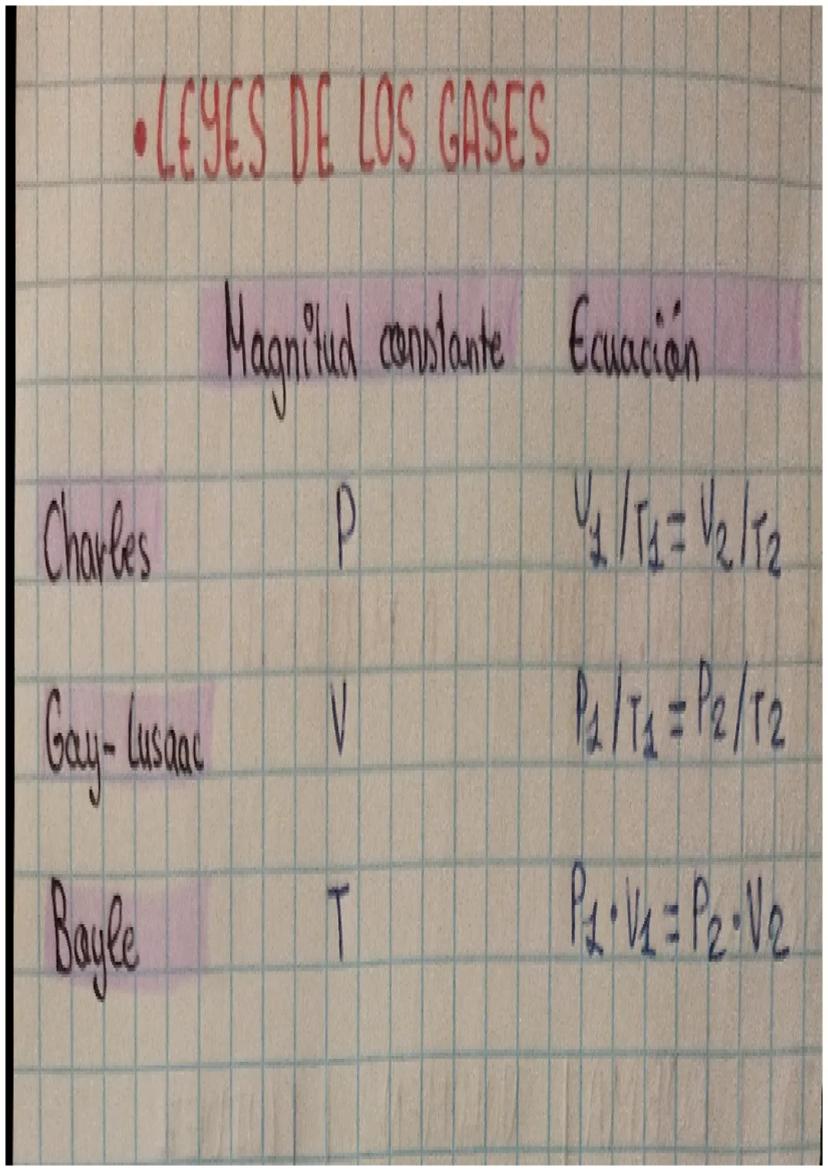 • LEYES DE LOS GASES
Magnitud constante Ecuación
Charles P V1/T1 = V2/T2
Gay-Lusaac V P1/T1 = P2/T2
Boyle T P1·V1 = P2·V2